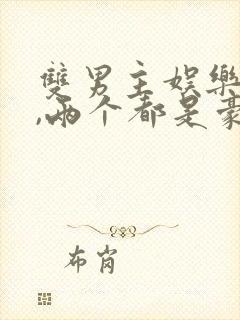 雙男主娛樂
,兩个都是豪
布肖